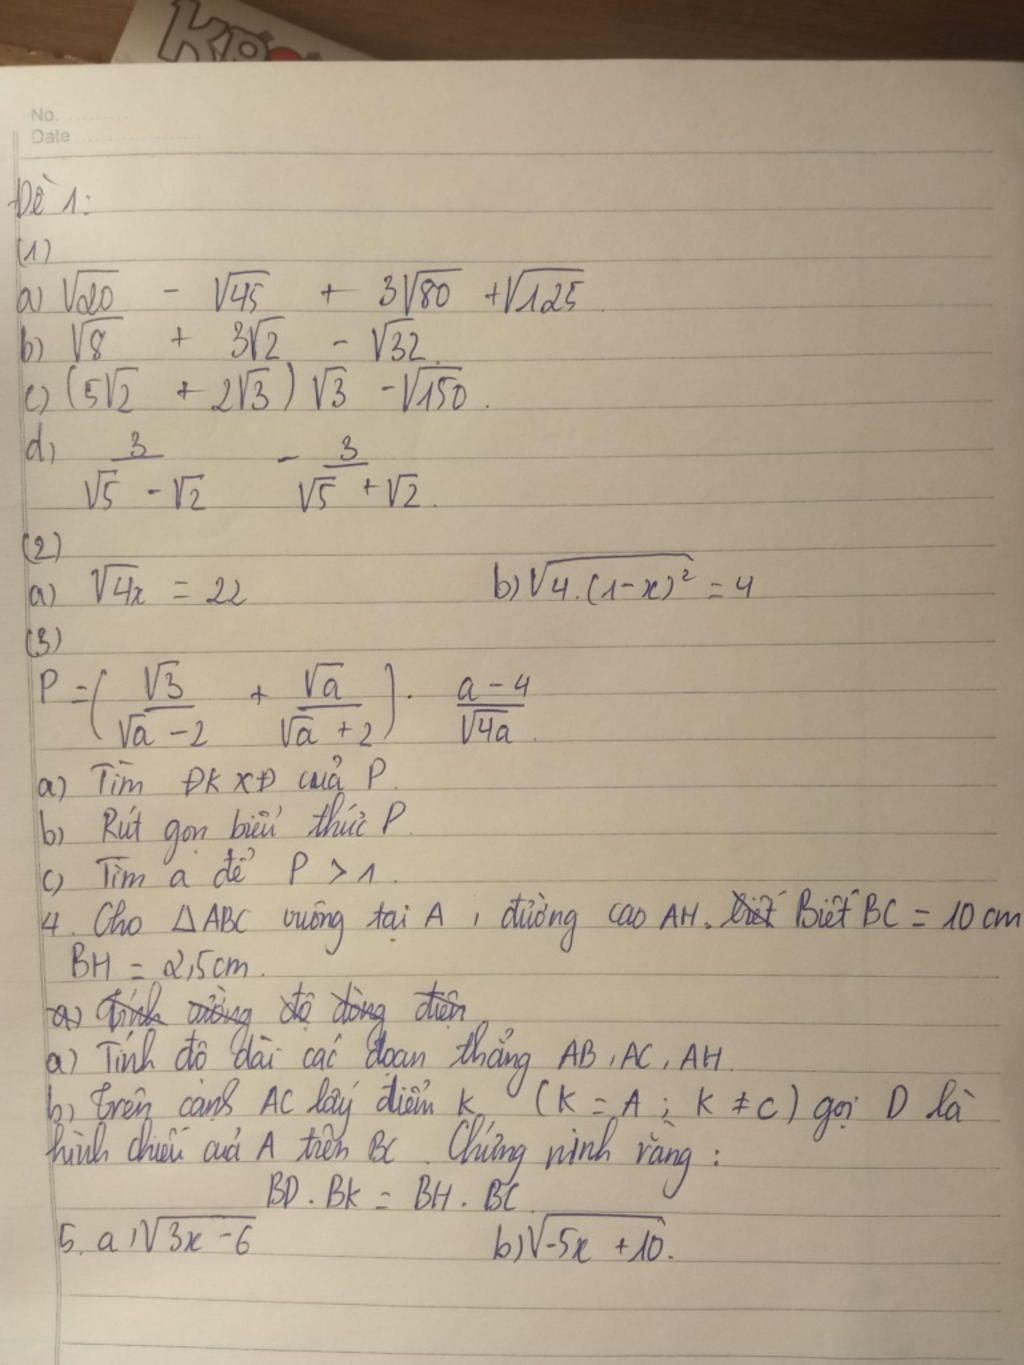 No.
Date
Đề 1:
(1)
a) √20 - √45 + 3√80 + √125.
b) √8 + 3√2 - √32.
c) (5√2 + 2√3) √3 - √150.
d) 3/(√5 - √2) - 3/(√5 + √2).
(2)
a) √4x = 22 b) √4.(1-x)² = 4
(3)
P = (√3/(√a - 2) + √a/(√a + 2)) . (a - 4)/√4a.
a) Tìm ĐKXĐ cuả P.
b) Rút gọn biểu thức P.
c) Tìm a để P > 1.
4. Cho △ABC vuông tại A, đường cao AH. Biết BC = 10 cm
BH = 2,5cm.
a) Tính độ dài các đoạn thẳng AB, AC, AH.
b) Trên cạnh AC lấy điểm K (K = A; K ≠ C) gọi D là
hình chiếu cuả A trên BC. Chứng minh rằng:
BD. BK = BH. BC.
5. a) √3x - 6 b) √-5x + 10.